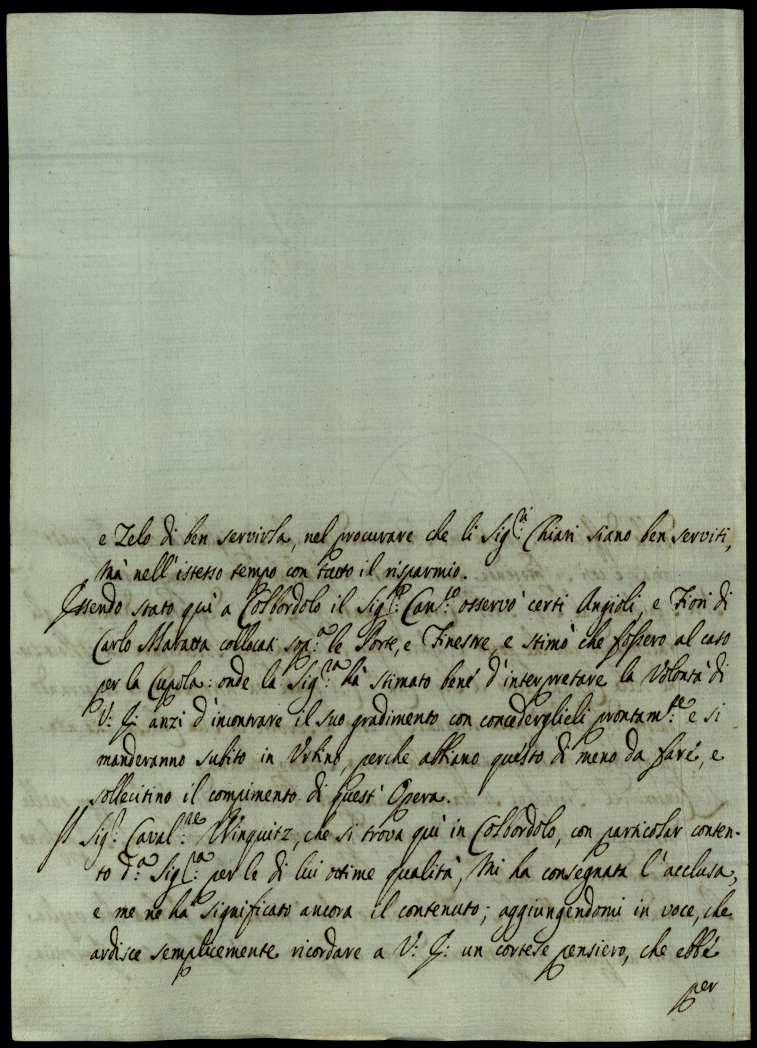 e Zelo di ben servirla, nel procurare che li Sig:ri Chiari siano ben serviti,
mà nell'istesso tempo con tutto il risparmio.
Essendo stato quì a Colbordolo il Sig:re Can:co osservò certi Angioli, e Fiori di
Carlo Maratta collocati sop:a le Porte, e Finestre, e stimò che fossero al caso
per la Cupola: onde la Sig:ra hà stimato bene d'interpretare la Volontà di
V: S: anzi d'incontrare il suo gradimento con concederglieli prontam:te e si
manderanno subito in Urbino, perche abbiano questo di meno da fare, e
sollecitino il compimento di quest'Opera.
Il Sig: Caval:re Winquitz, che si trova quì in Colbordolo, con particolar conten-
to d:a Sig:ra per le di lui ottime qualità, mi ha consegnata l'acclusa,
e me ne hà significato ancora il contenuto; aggiungendomi in voce, che
ardisce semplicemente ricordare a V: S: un cortese pensiero, che ebbe
per